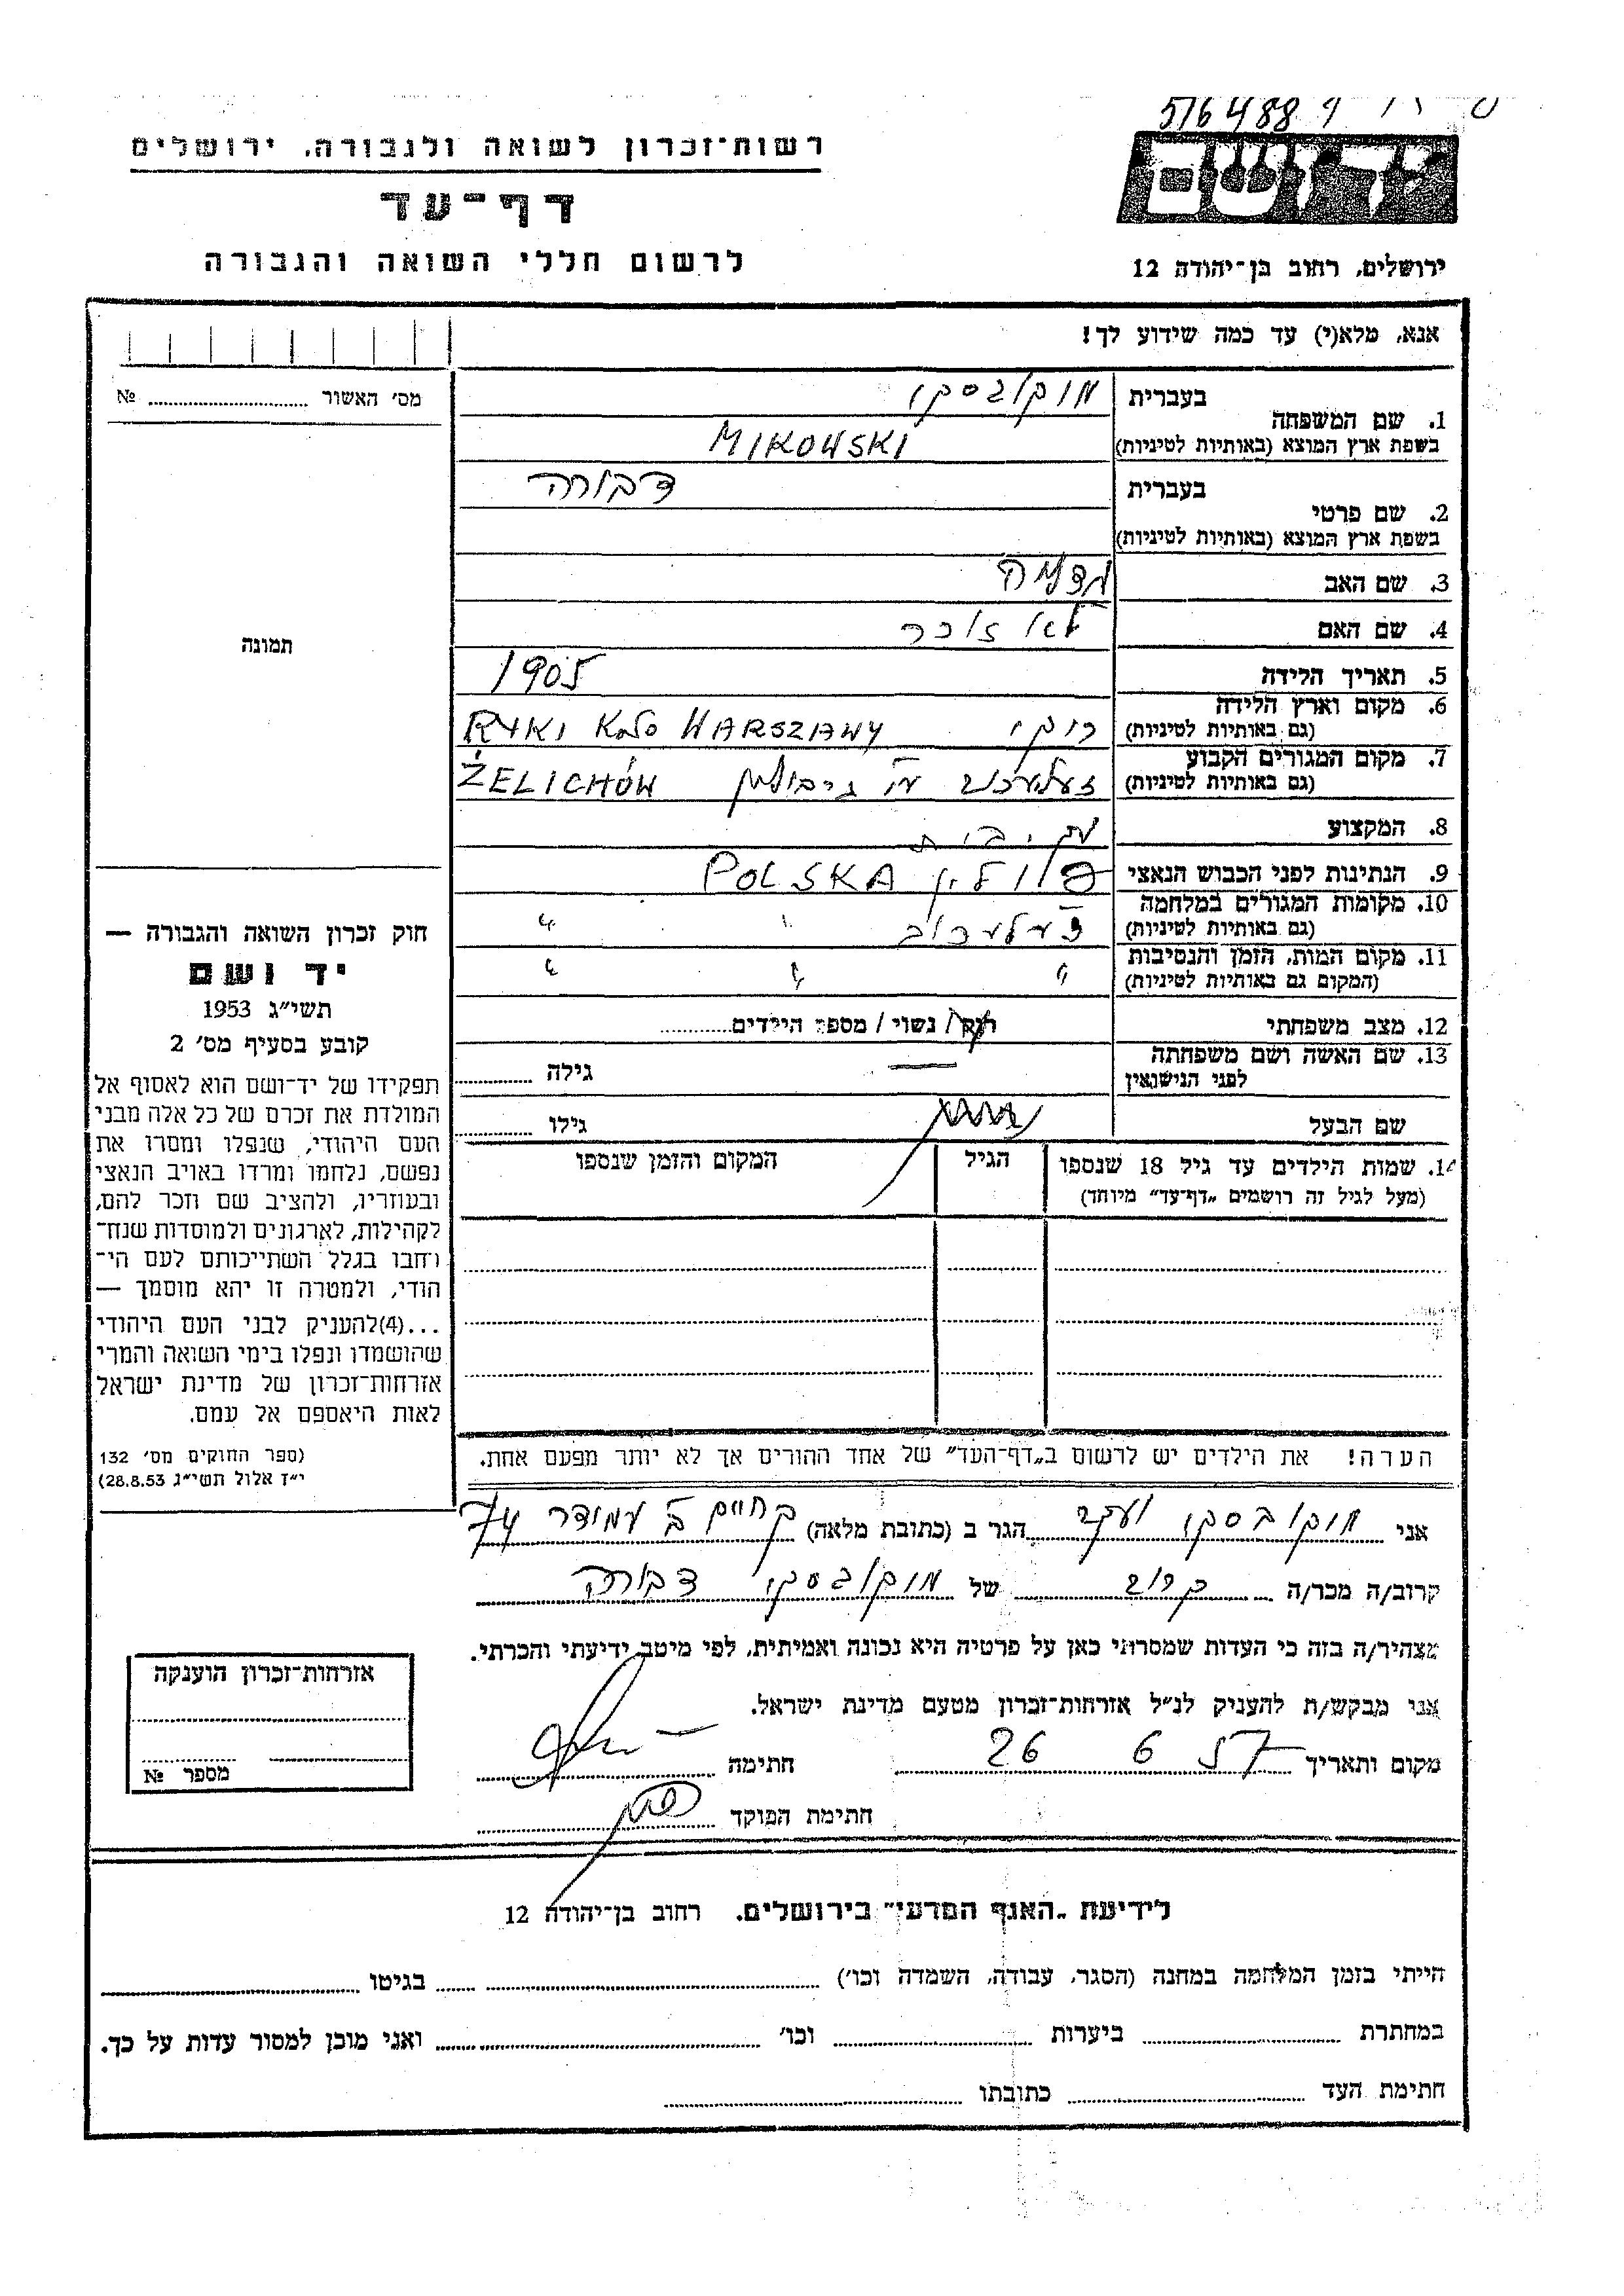 516488
רשות־זכרון לשואה ולגבורה, ירושלים
יד ושם
דף־עד
לרשום חללי השואה והגבורה
ירושלים, רחוב בן־יהודה 12
אנא, מלא(י) עד כמה שידוע לך!
מס׳ האשור № 
1. שם המשפחה
בעברית מיקובסקי
בשפת ארץ המוצא (באותיות לטיניות) MIKOWSKI
2. שם פרטי
בעברית דבורה
בשפת ארץ המוצא (באותיות לטיניות)
3. שם האב
4. שם האם
5. תאריך הלידה 1905
6. מקום וארץ הלידה
(גם באותיות לטיניות) ריקי RYKI KOŁO WARSZAWY
7. מקום המגורים הקבוע
(גם באותיות לטיניות) ŻELICHÓW
8. המקצוע
9. הנתינות לפני הכבוש הנאצי פולין POLSKA
10. מקומות המגורים במלחמה
(גם באותיות לטיניות) " "
11. מקום המות, הזמן והנסיבות
(המקום גם באותיות לטיניות) " " "
12. מצב משפחתי רווק / נשוי / מספר הילדים
13. שם האשה ושם משפחתה
לפני הנישואין — גילה
שם הבעל גילו
14. שמות הילדים עד גיל 18 שנספו
(מעל לגיל זה רושמים „דף־עד״ מיוחד)
הגיל
המקום והזמן שנספו
הערה! את הילדים יש לרשום ב„דף־העד״ של אחד ההורים אך לא יותר מפעם אחת.
תמונה
חוק זכרון השואה והגבורה —
יד ושם
תשי״ג 1953
קובע בסעיף מס׳ 2
תפקידו של יד־ושם הוא לאסוף אל
המולדת את זכרם של כל אלה מבני
העם היהודי, שנפלו ומסרו את
נפשם, נלחמו ומרדו באויב הנאצי
ובעוזריו, ולהציב שם וזכר להם,
לקהילות, לארגונים ולמוסדות שנח־
רחבו בגלל השתייכותם לעם הי־
הודי, ולמטרה זו יהא מוסמך —
...(4)להעניק לבני העם היהודי
שהושמדו ונפלו בימי השואה והמרי
אזרחות־זכרון של מדינת ישראל
לאות היאספם אל עמם.
(ספר החוקים מס׳ 132
י״ז אלול תשי״ג 28.8.53)
אני מיקובסקי יעקב הגר ב (כתובת מלאה)
קרוב/ה מכר/ה קרוב של מיקובסקי דבורה
מצהיר/ה בזה כי העדות שמסרתי כאן על פרטיה היא נכונה ואמיתית, לפי מיטב ידיעתי והכרתי.
אני מבקש/ת להעניק לנ״ל אזרחות־זכרון מטעם מדינת ישראל.
מקום ותאריך 26 6 57 חתימה
חתימת הפוקד
אזרחות־זכרון הוענקה
מספר №
לידיעת „האגף המדעי״ בירושלים, רחוב בן־יהודה 12
הייתי בזמן המלחמה במחנה (הסגר, עבודה, השמדה וכו׳) בגיטו
במחתרת ביערות וכו׳ ואני מוכן למסור עדות על כך.
חתימת העד כתובתו